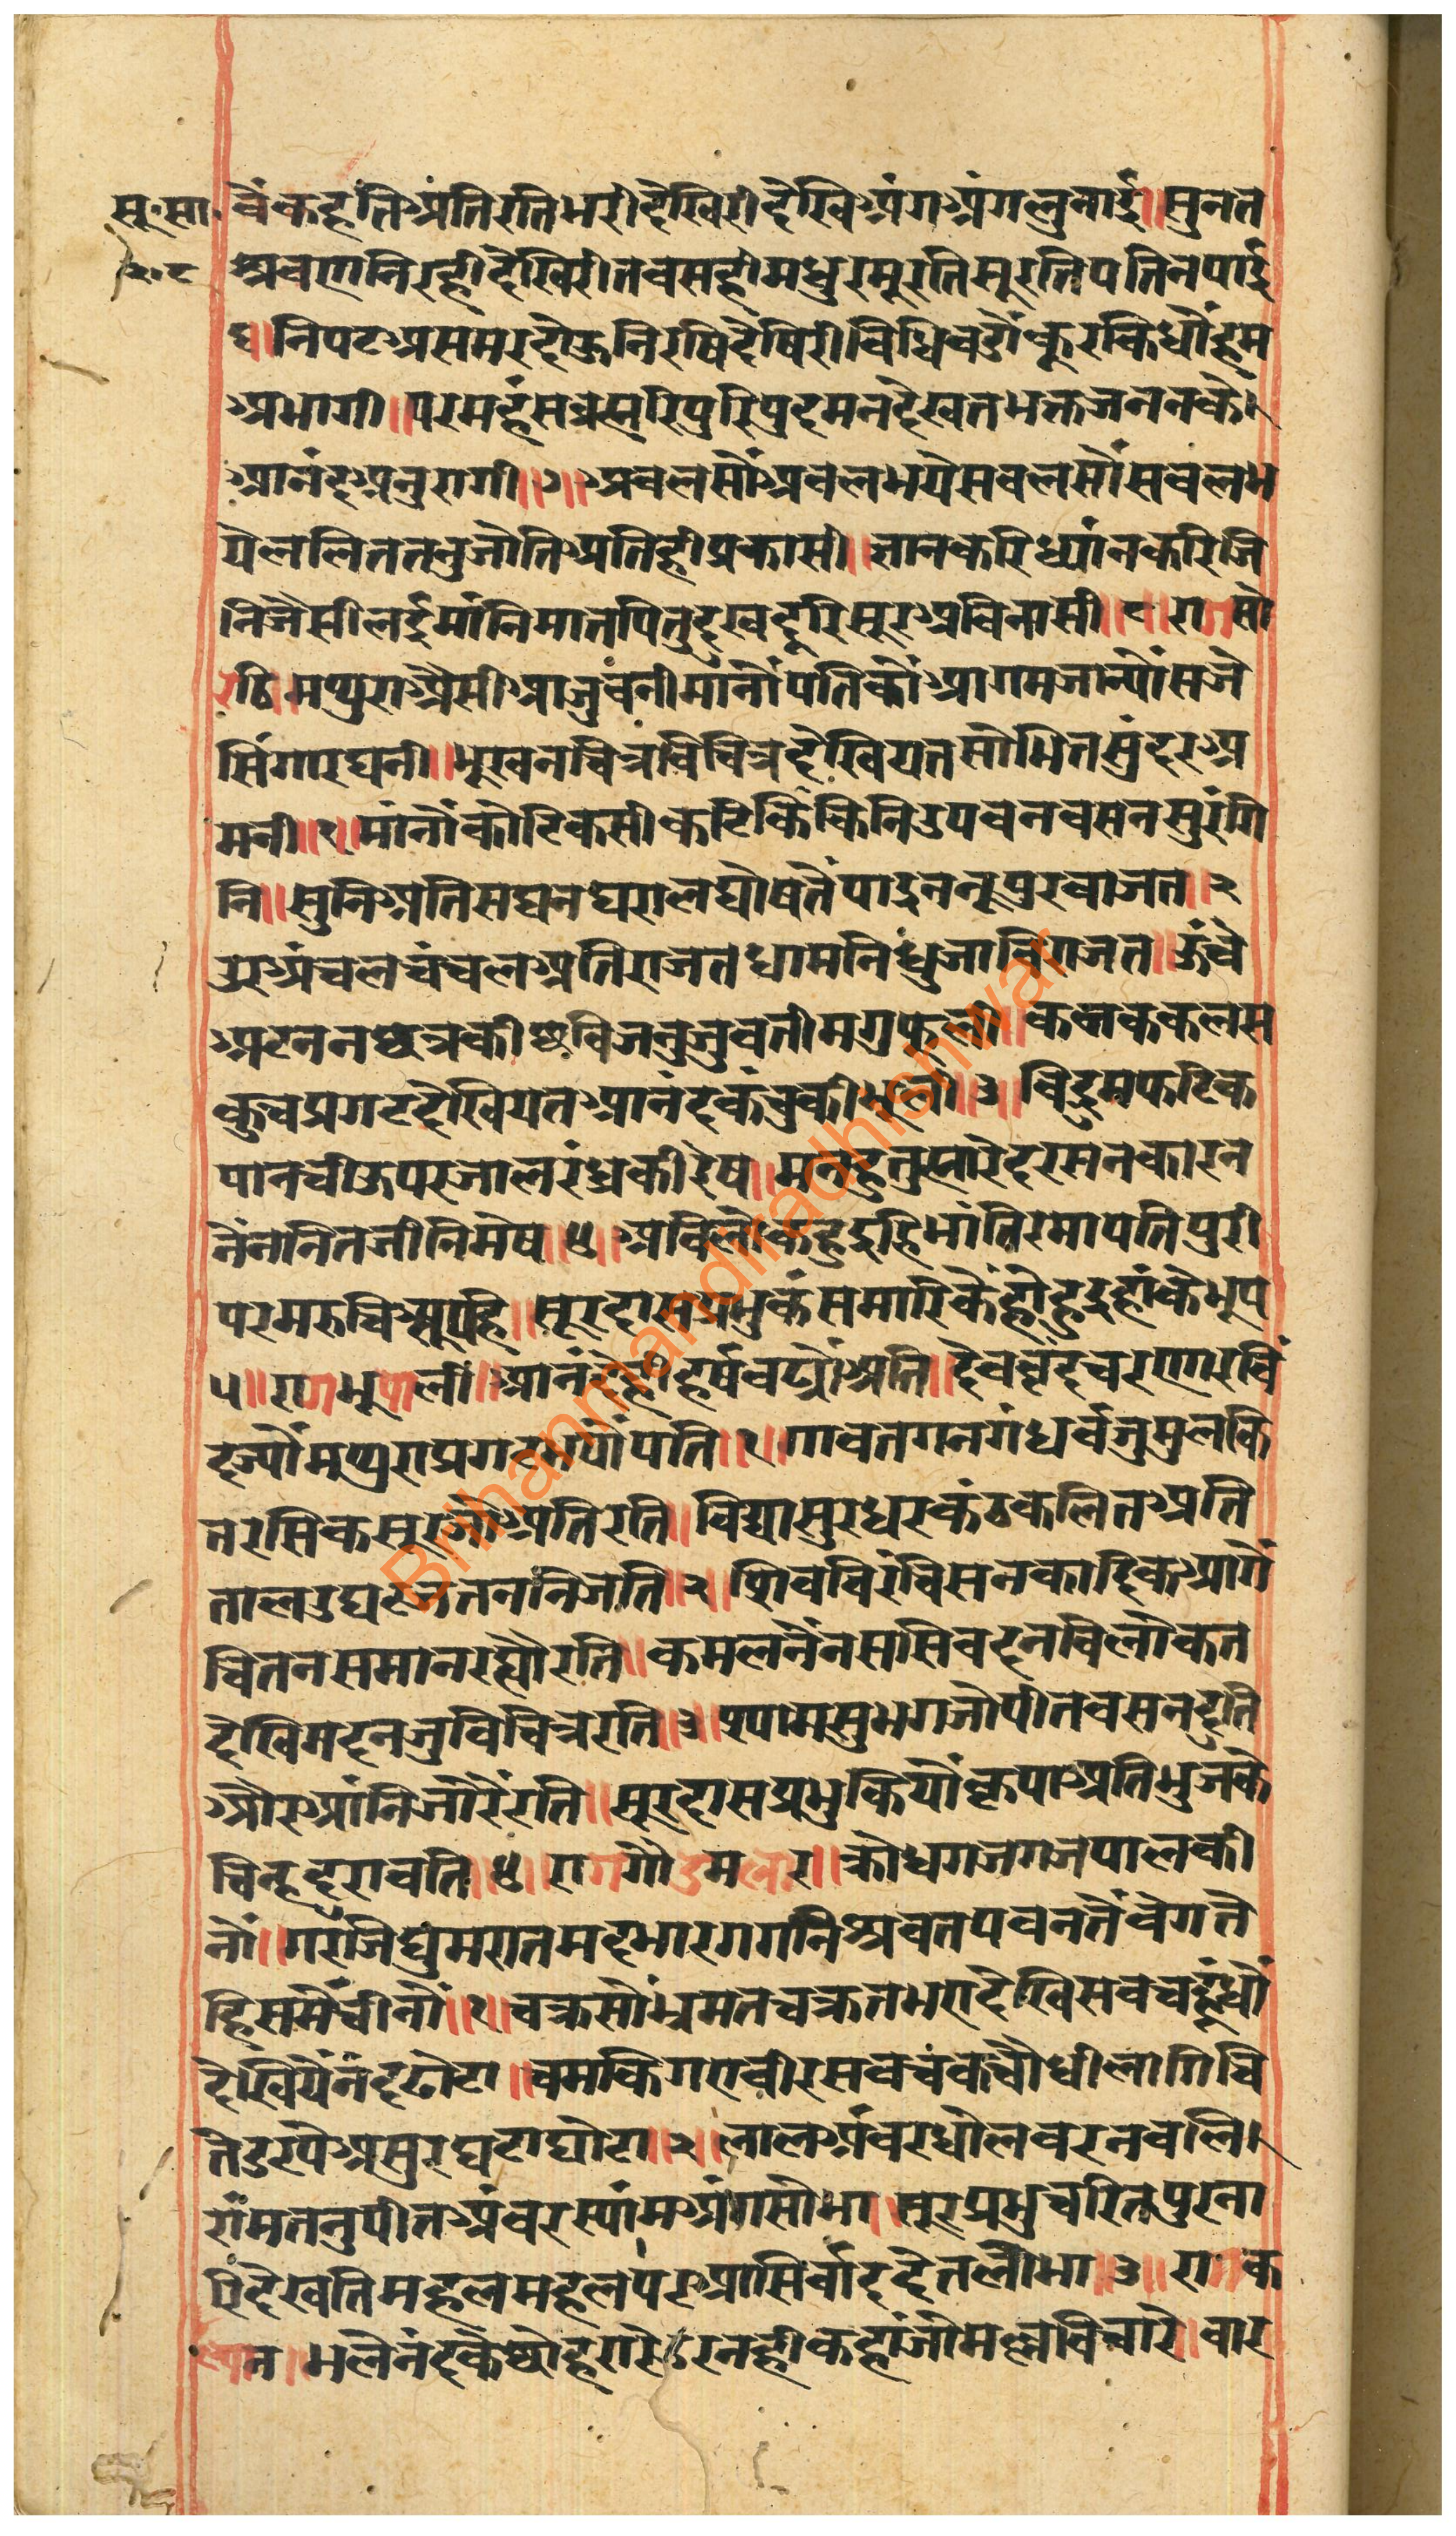 सू॰सा॰
२॰८
वैंकहतिअतिरतिभरीदेखिरीदेखिअंगअंगलुनाई॥सुनत
श्रवणनिरहीदेखिरीतबसहीमधुरमूरतिसूरतिपतिनपाई
६॥निपटअसमरदोऊनिरषिदेषिरीविधिबडौकूरकिधौंहम
अभागी॥परमहंस पुरि देखतभक्तजननके
आनंदअनुरागी॥७॥अबलसौंअबलभयेसबलसौंसबलभ
येललिततनुजोतिअतिहीप्रकासी॥ग्यानकरिध्यांनकरिजि
निजैसीलईमांनिमातपितुदुखदूरिसूरअबिनासी॥८॥रागसो
रठि॥मथुराअैसीआजुबनीमांनौंपतिकौआगमजान्यौंसजे
सिंगारघनी॥भूखनचित्रबिचित्रदेखियतसोभितसुंदरअ
मनी॥१॥मांनौंकोटिकसीकटिकिंकिनिउपबनबसनसुरंगि
नि॥सुनिअतिसघनघरालघोषतेंपाइननूपुरबाजत॥२
उरअंचलचंचलअतिराजतधामनिधुजाबिराजत॥ऊंचे
अटननछत्रकीछबिजनुजुवतीमगुफूली॥कनककलस
कुचप्रगटदेखियतआनंदकंचुकीभूली॥३॥बिद्रुमफटिक
पानचीऊपरजालरंध्रकीरेष॥मनहुतुम्हारेदरसनकारन
नेंननितजीनिमेष॥४॥अबिलोकहुइहिभांतिरमापतिपुरी
परमरुचिरूपहि॥सूरदासप्रभुकंसमारिकैंहोहुइहांकेभूप
५॥रागभूपाली॥आनंदैहीहर्षबढ्यौअति॥देवबृंदचरणारबिं
दज्यौंमथुराप्रगटभयौपति॥१॥गावतगनगंधर्बजुमुलकि
तरसिकसूरजोअतिरति॥विद्यासुरधरकंठकलितअति
तालउघटततननिजति॥२॥शिवबिरंचिसनकादिकआगें
चितनसमानरह्यौरति॥कमलनेंनससिबदनबिलोकत
देखिमदनजुविचित्ररति॥३॥स्यामसुभगजोपीतवसनदुति
औरआंनिजोरेंरति॥सूरदासप्रभुकियौकृपाअतिभुजके
चिन्हदरावति॥४॥रागगौडमलार॥क्रोधगजगजपालकी
नौं॥गरजिघुंमरातमदभारगगनिश्रवतपवनतेंबेगते
हिसमैंचीनौं॥१॥चक्रसौंभ्रमतचक्रतभरादेखिसबचहूंधौं
देखियेंनंदढोटा॥चमकिगएबीरसबचंकचौधीलागिचि
तेडरपेअसुरघटाघोटा॥२॥लालअंबरधौलबरनबलि
रांमतनुपीतअंबरस्यांमअंगसोभा॥सूरप्रभुचरितपुरना
रिदेखतिमहलमहलपरआसिर्वाददेतलोभा॥३॥रागक
ल्यान॥भलेनंदकेछोहरा नहीकहांजोमल्लबिचारे॥बार